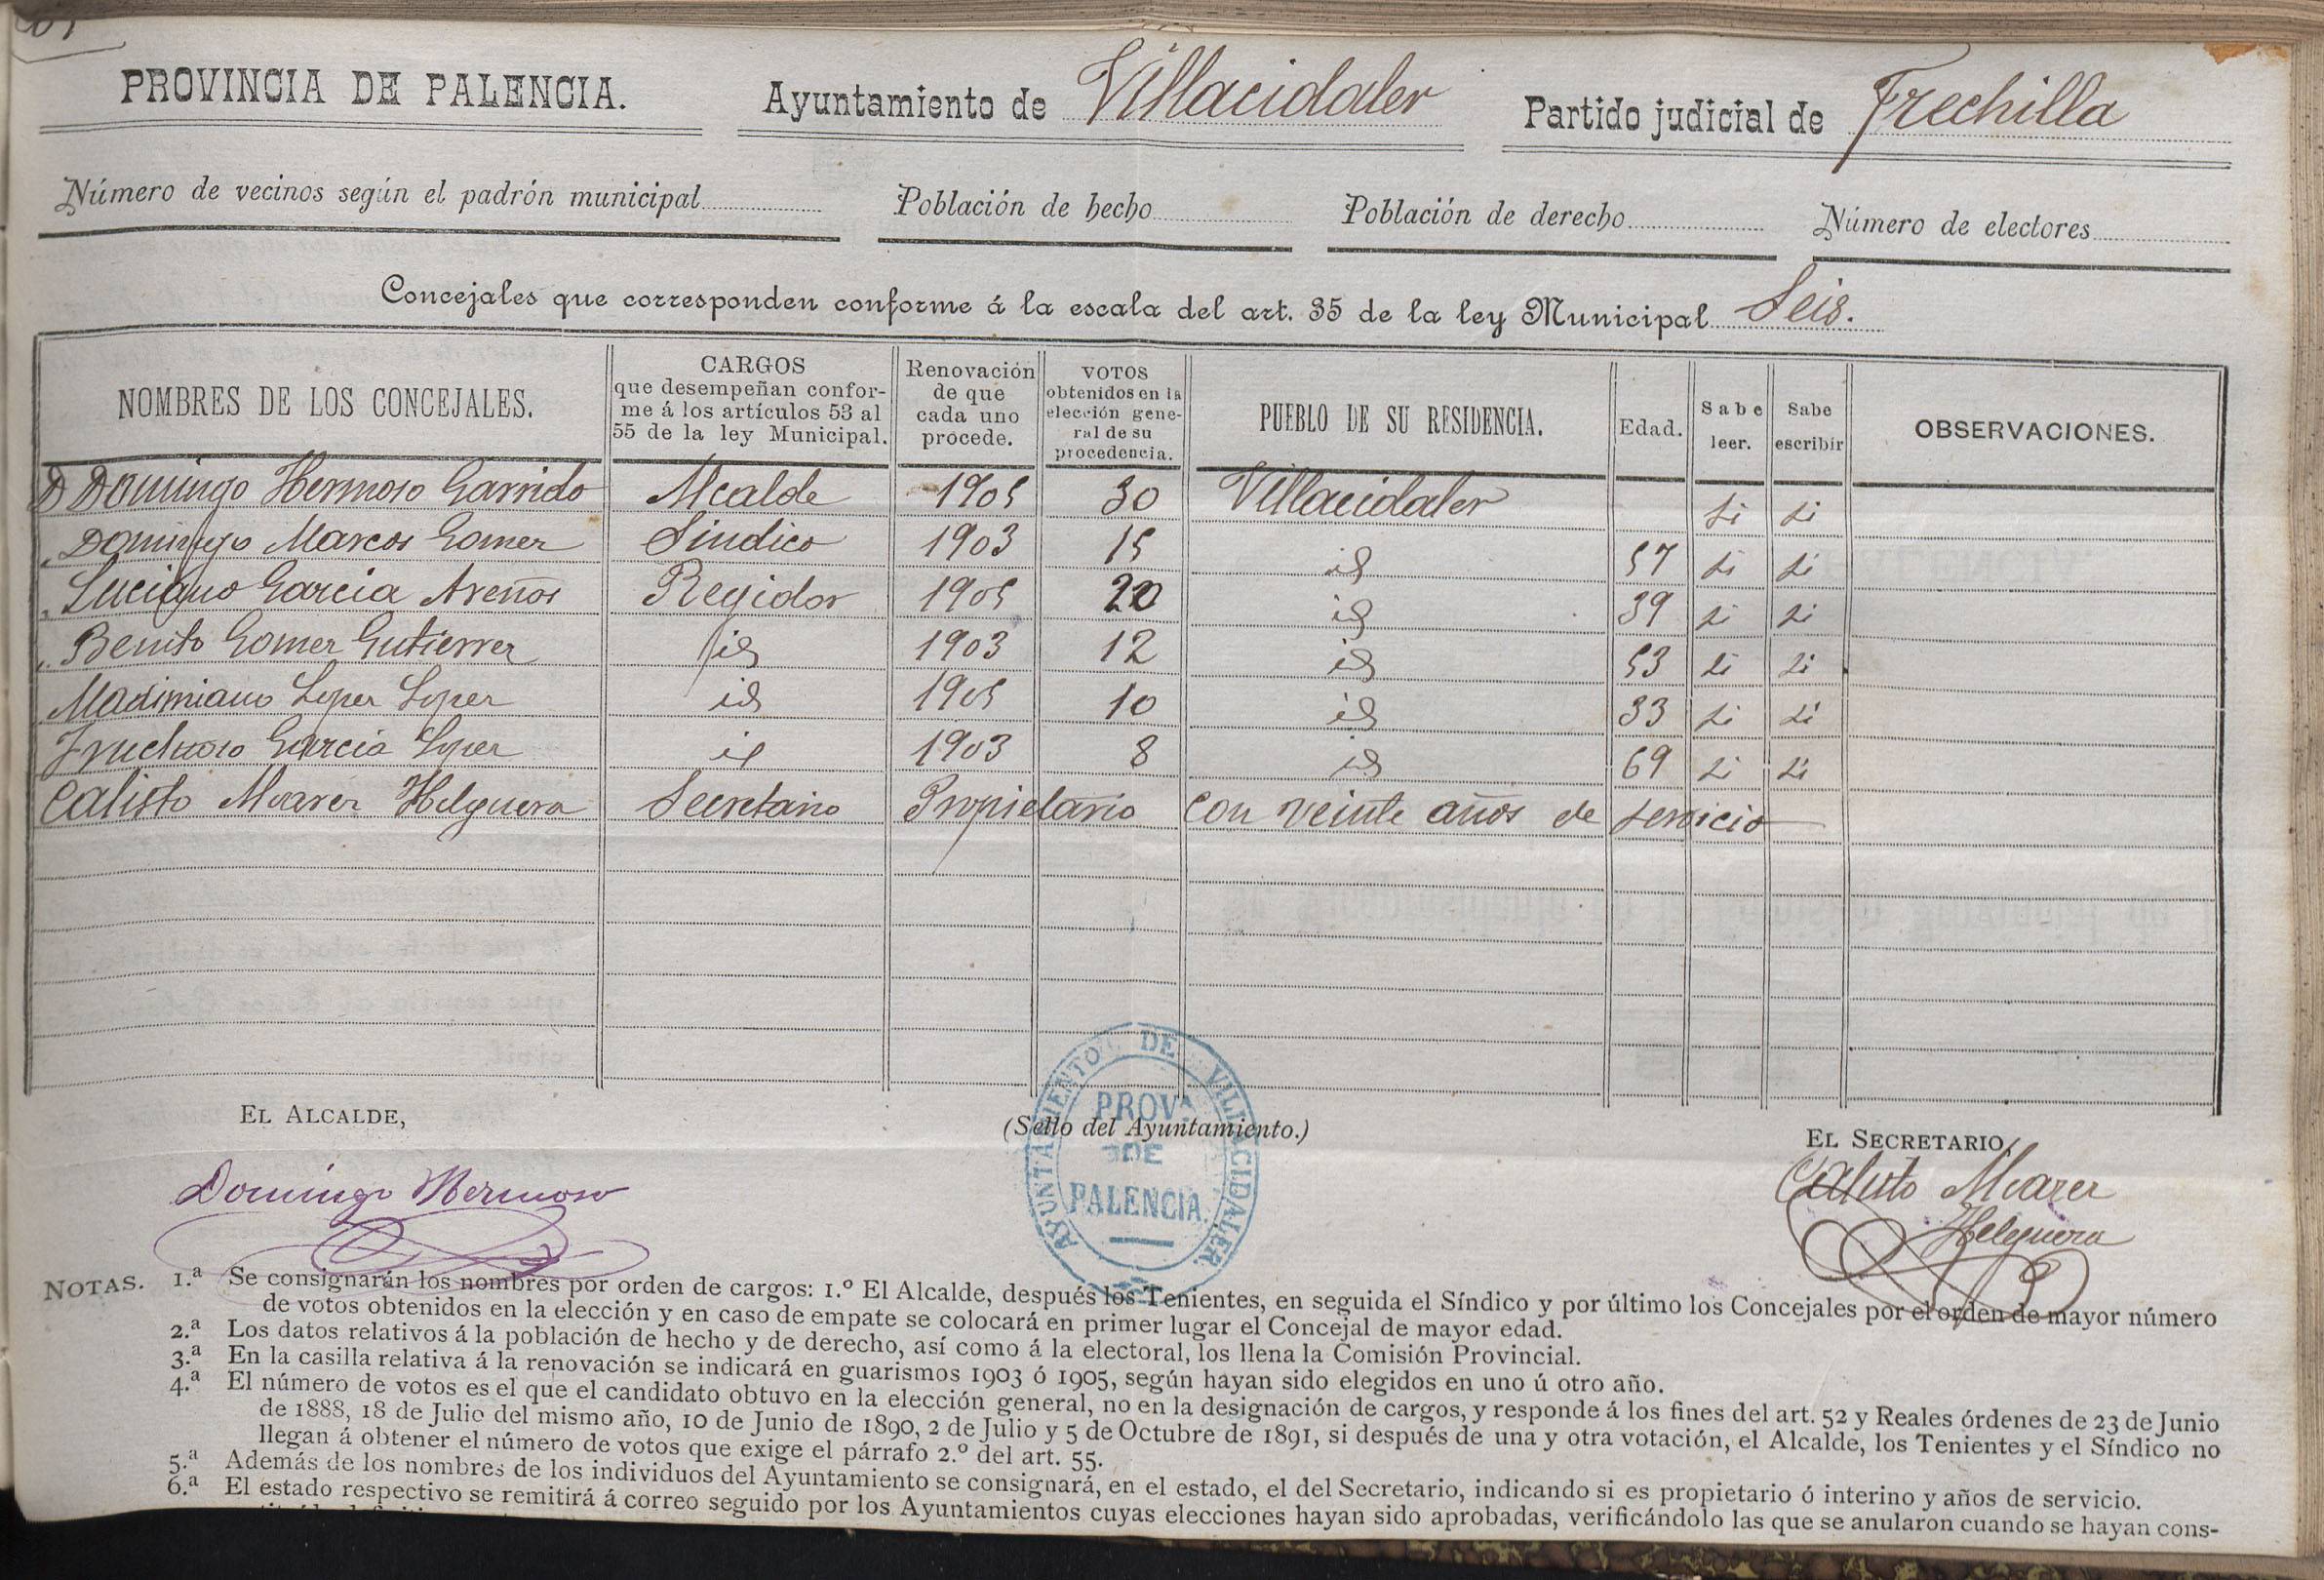 PROVINCIA DE PALENCIA. Ayuntamiento de Villacidaler Partido judicial de Frechilla
Número de vecinos según el padrón municipal Población de hecho Población de derecho Número de electores
Concejales que corresponden conforme á la escala del art. 35 de la ley Municipal Seis.
NOMBRES DE LOS CONCEJALES. CARGOS que desempeñan conforme á los artículos 53 al 55 de la ley Municipal. Renovación de que cada uno procede. VOTOS obtenidos en la elección general de su procedencia. PUEBLO DE SU RESIDENCIA. Edad. Sabe leer. Sabe escribir OBSERVACIONES.
D Domingo Hermoso Garrido Alcalde 1905 30 Villacidaler si si
" Domingo Marcos Gomez Sindico 1903 15 id 57 si si
" Luciano Garcia Areños Regidor 1905 20 id 39 si si
" Benito Gomez Gutierrez id 1903 12 id 53 si si
Maximiano Lopez Lopez id 1905 10 id 33 si si
Fructuoso Garcia Lopez id 1903 8 id 69 si si
Calisto Alvarez Helguera Secretario Propietario con veinte años de servicio
EL ALCALDE, (Sello del Ayuntamiento.) EL SECRETARIO,
AYUNTAMIENTO DE VILLACIDALER
PROVA
DE
PALENCIA
Domingo Hermoso
Calisto Alvarez
Helguera
NOTAS. 1.ª Se consignarán los nombres por orden de cargos: 1.º El Alcalde, después los Tenientes, en seguida el Síndico y por último los Concejales por el orden de mayor número
de votos obtenidos en la elección y en caso de empate se colocará en primer lugar el Concejal de mayor edad.
2.ª Los datos relativos á la población de hecho y de derecho, así como á la electoral, los llena la Comisión Provincial.
3.ª En la casilla relativa á la renovación se indicará en guarismos 1903 ó 1905, según hayan sido elegidos en uno ú otro año.
4.ª El número de votos es el que el candidato obtuvo en la elección general, no en la designación de cargos, y responde á los fines del art. 52 y Reales órdenes de 23 de Junio
de 1888, 18 de Julio del mismo año, 10 de Junio de 1890, 2 de Julio y 5 de Octubre de 1891, si después de una y otra votación, el Alcalde, los Tenientes y el Síndico no
llegan á obtener el número de votos que exige el párrafo 2.º del art. 55.
5.ª Además de los nombres de los individuos del Ayuntamiento se consignará, en el estado, el del Secretario, indicando si es propietario ó interino y años de servicio.
6.ª El estado respectivo se remitirá á correo seguido por los Ayuntamientos cuyas elecciones hayan sido aprobadas, verificándolo las que se anularon cuando se hayan cons-